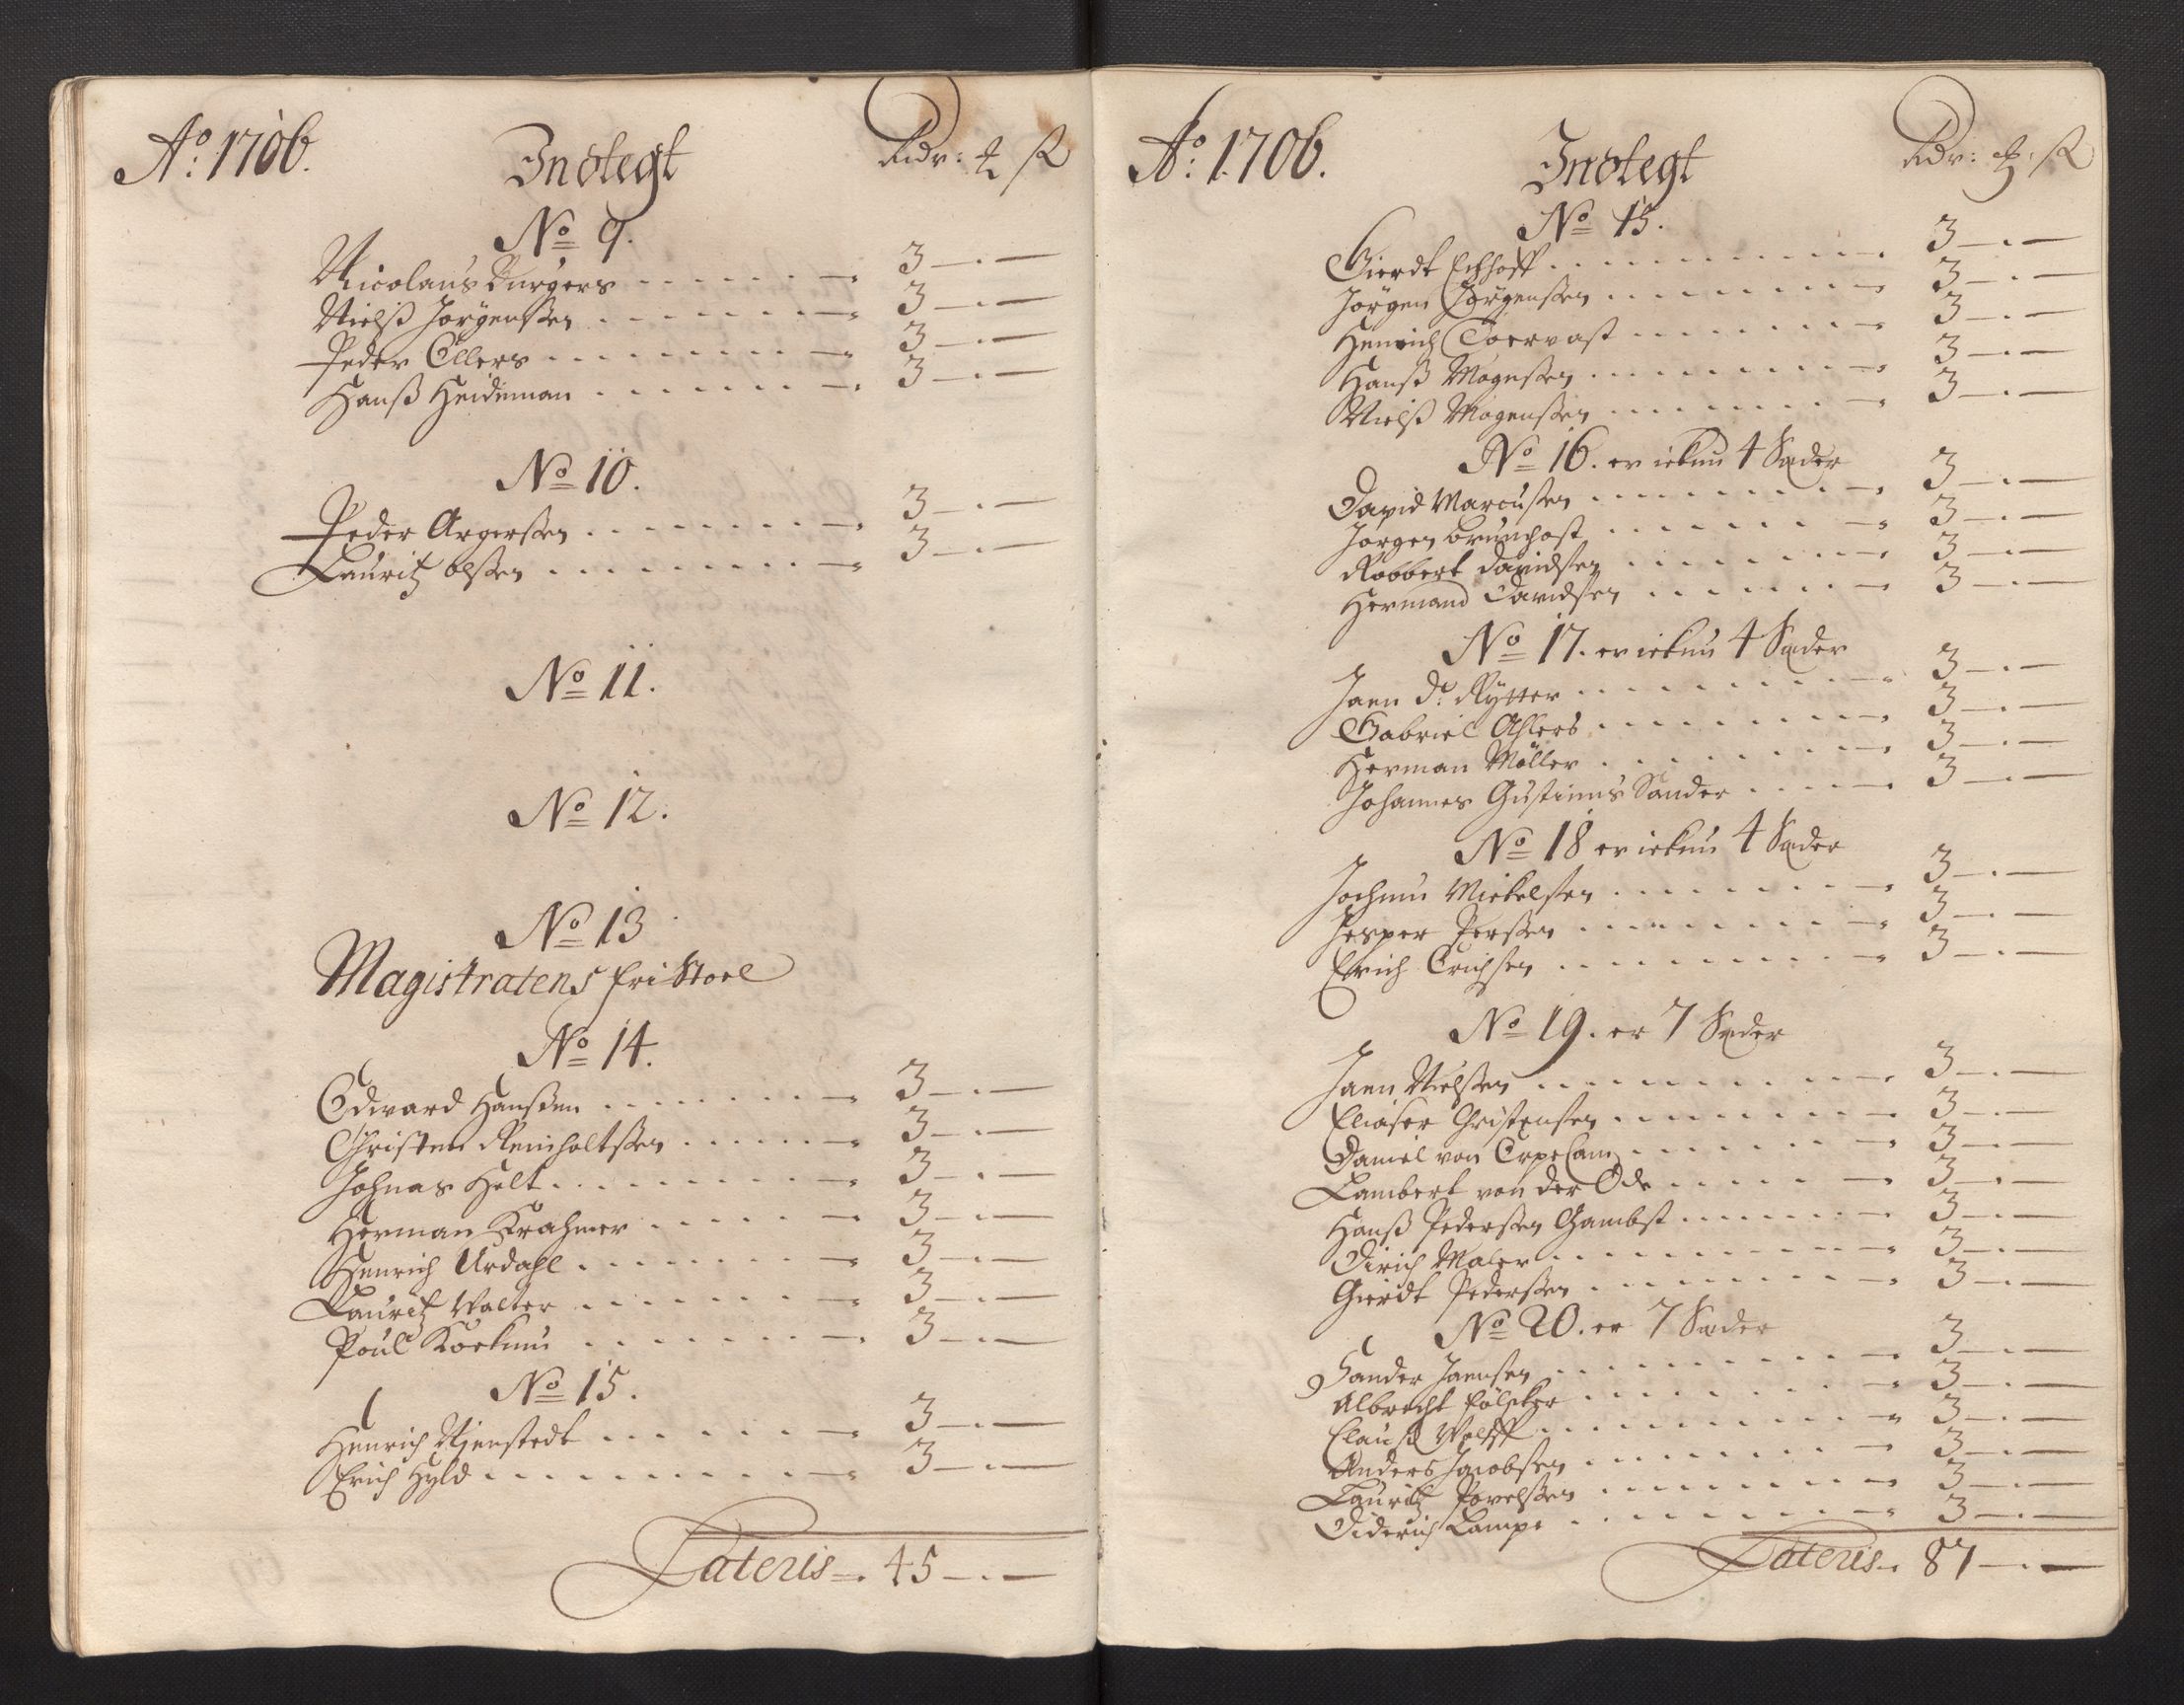 Ao: 1706. Indtegt Rdr: ß
No 9.
Nicolaus Burgers 3
Nielß Jørgensen 3
Peder Ellers 3
Hanß Heideman 3
No 10.
Peder Aagersen 3
Lauritz olsen 3
No 11.
No 12.
No 13
Magistratens fri Stoel
No 14.
Edward Hanßen 3
Christen Reinholtsen 3
Johnas Holt 3
Herman Krahmer 3
Henrich Urdahl 3
Lauritz Walter 3
Poul 3
No 15.
Henrich Nienstedt 3
Erich Hyld 3
Lateris 45
Ao: 1706. Indtegt Rdr: ß
No 15.
Gierdt Echhoff 3
Jørgen Jørgensen 3
Henrich 3
Hanß Mogensen 3
Nielß Mogensen 3
No 16. er ickun 4 Sæder
David Marcusen 3
Jørgen Brunchost 3
Robbert Davidsen 3
Hermand Davidsen 3
No 17. er ickun 4 Sæder
Jaen d: Rytter 3
Gabriel Ahlers 3
Herman Møller 3
Johannes Gustinus Sander 3
No 18 er ickun 4 Sæder
Jochum Mickelsen 3
Jesper Persen 3
Erich Erichsen 3
No 19. er 7 Sæder
Jaen Nielsen 3
Eliaser Christensen 3
Daniel von Erpecam 3
Lambert von der Ode 3
Hanß Pedersen Gambst 3
Dirich Maler 3
Gierdt Pedersen 3
No 20. er 7 Sæder
Sander Jaensen 3
Albrecht Følcker 3
Clauß Wolff 3
Anders Jacobsen 3
Lauritz Povelsen 3
Diderich Lampe 3
Lateris 87